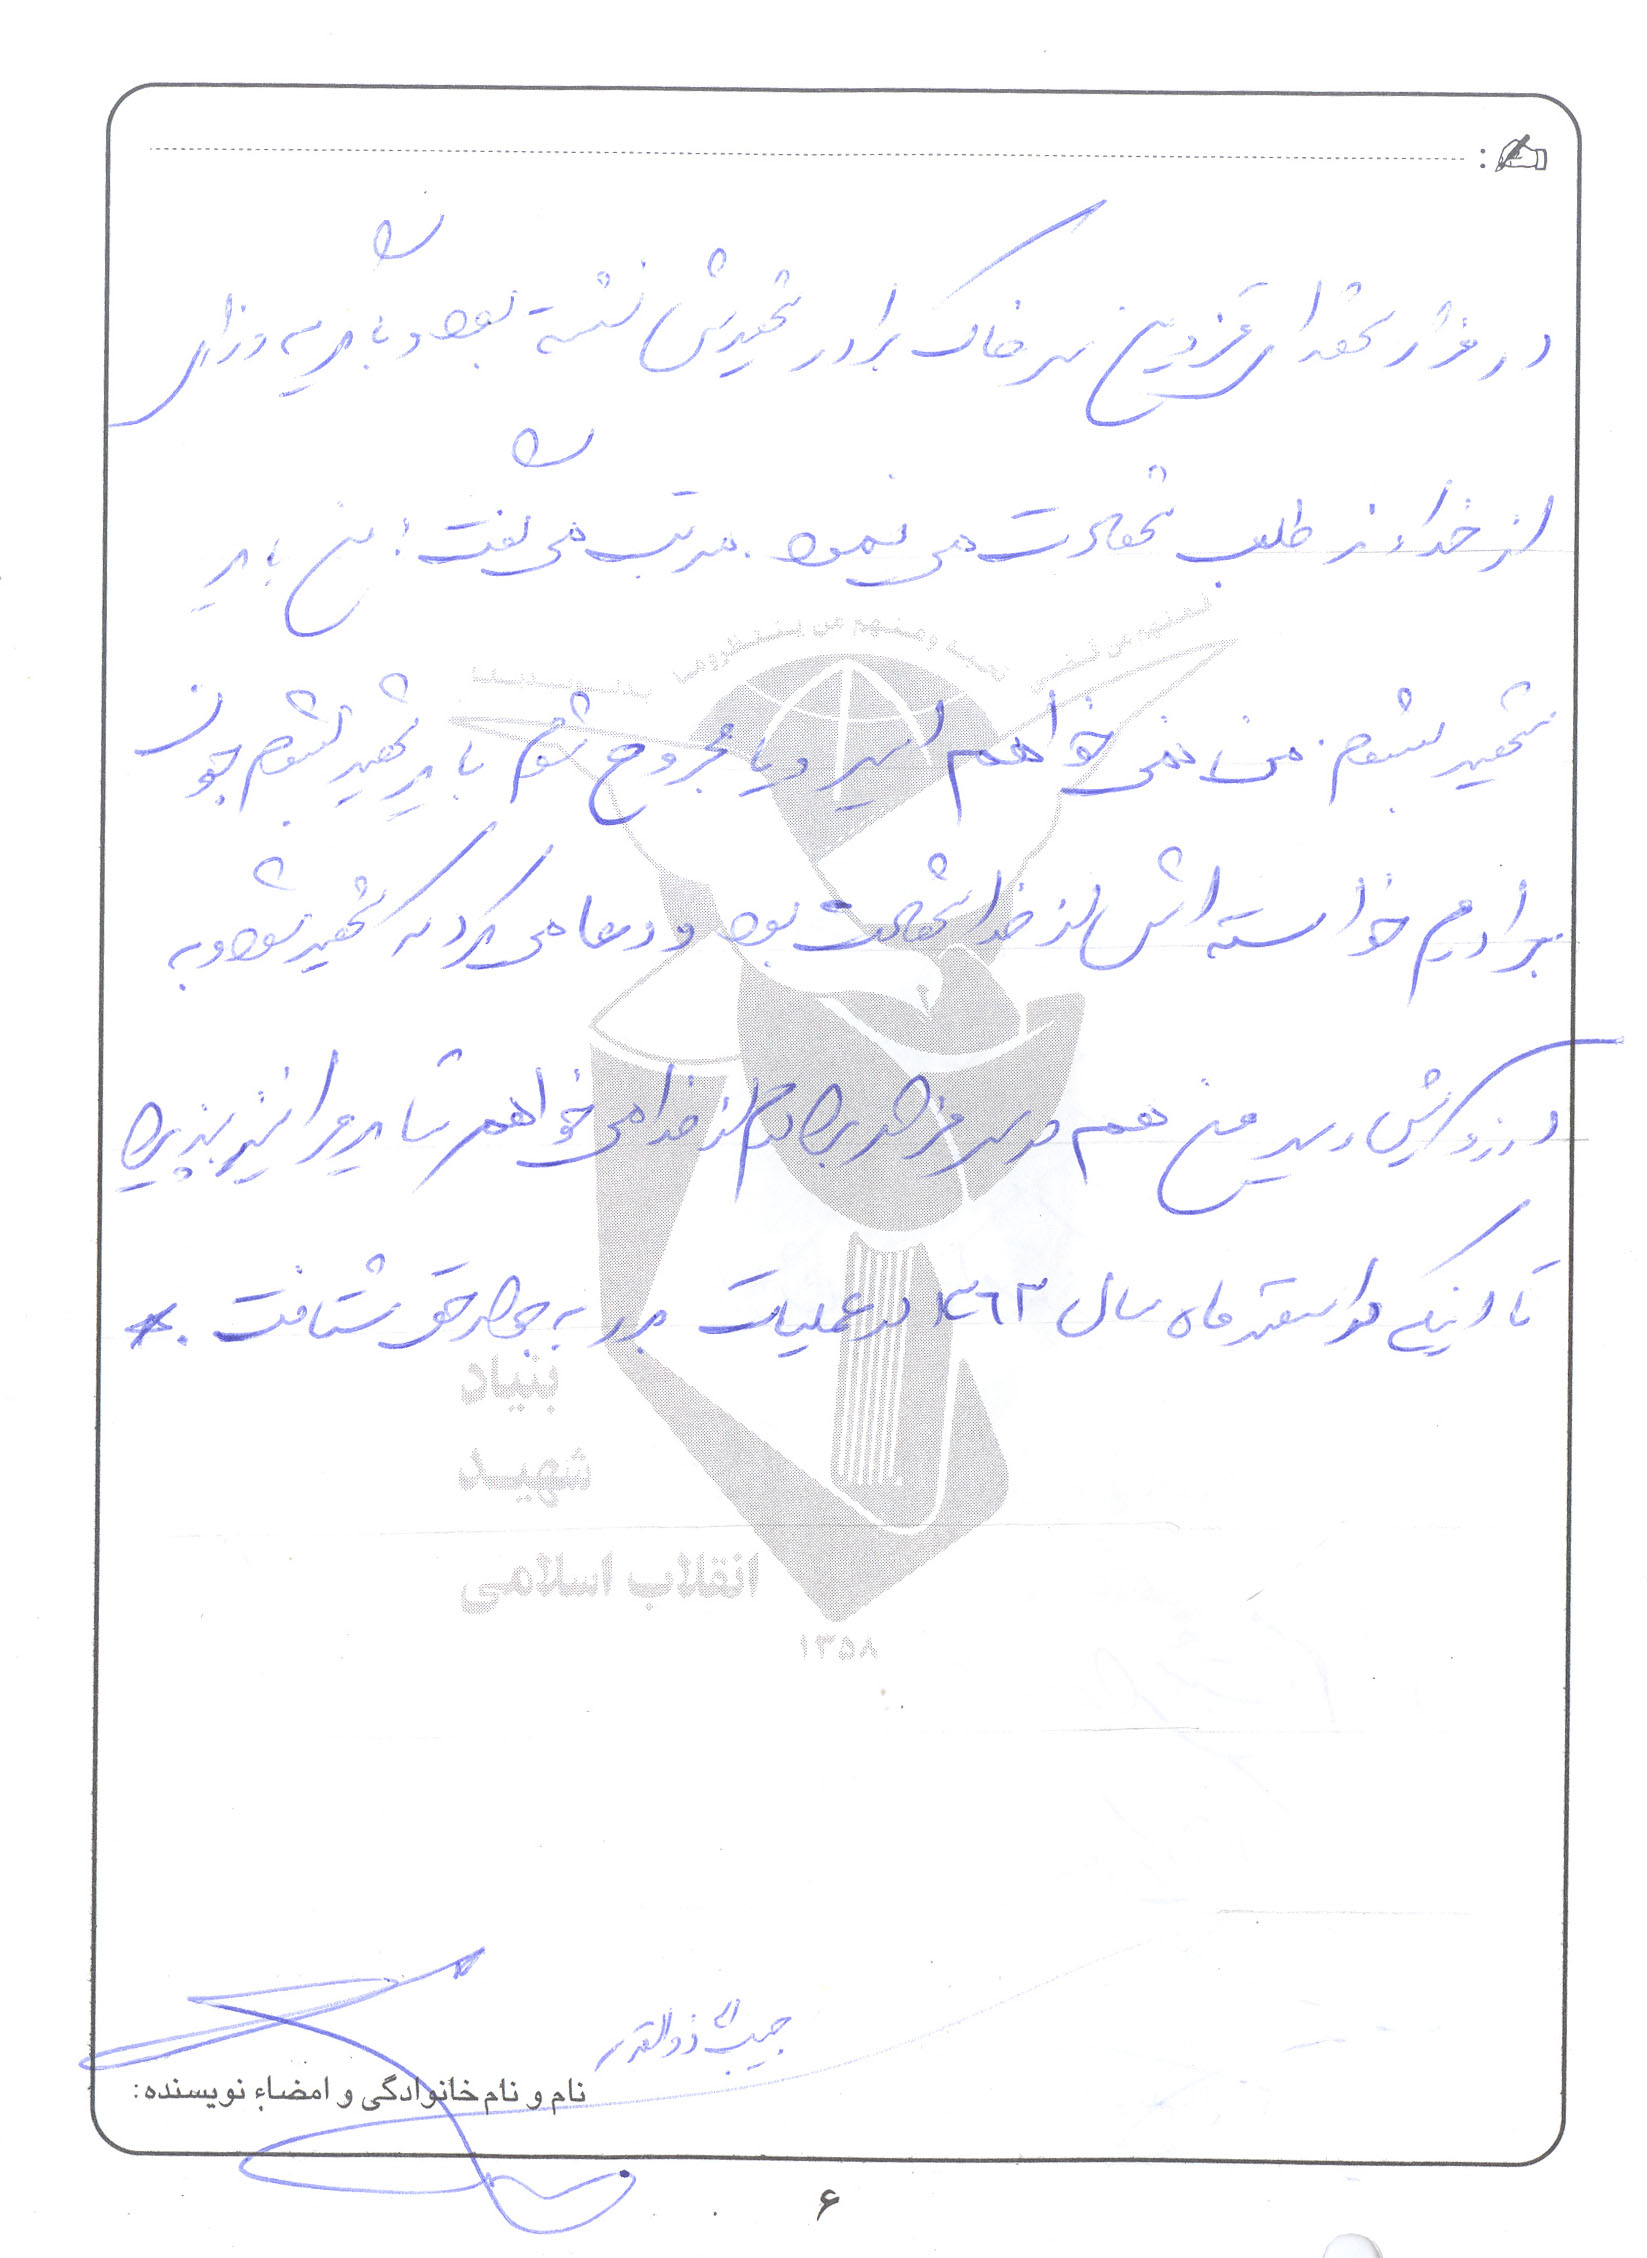 در مزار شهدای قزوین سر خاک برادر شهیدش نشسته بود و با گریه و زاری
از خداوند طلب شهادت می نمود. مرتب می گفت: من باید
شهید بشوم. من نمی خواهم اسیر و یا مجروح شوم باید شهید بشوم چون
برادرم خواسته اش از خدا شهادت بود و دعا می کرد که شهید شود و به
آرزویش رسید من هم در سر مزار برادرم از خدا می خواهم شاید مرا نیز بپذیرد
تا اینکه در اسفند ماه سال ۱۳۶۳ در عملیات بدر به جوار حق شتافت.
بنیاد
شهید
انقلاب اسلامی
۱۳۵۸
حبیب الله ذوالقدر
نام و نام خانوادگی و امضاء نویسنده:
۶